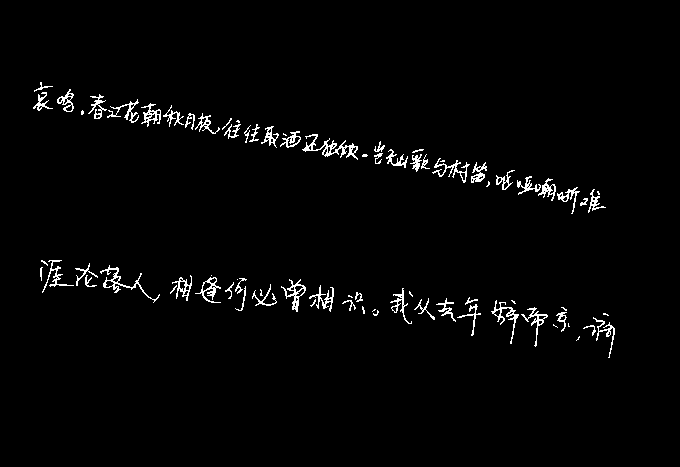 哀鸣。春江花朝秋月夜,往往取酒还独倾。岂无山歌与村笛,呕哑嘲哳难
涯沦落人,相逢何必曾相识。我从去年辞帝京,谪